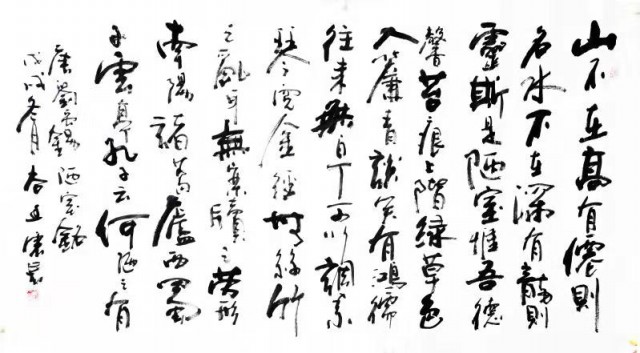 山不在高有僊則
名水不在深有龍則
靈斯是陋室惟吾德
馨苔痕上階綠草色
入簾青談笑有鴻儒
往來無白丁可以調素
琴閱金經無絲竹
之亂耳無案牘之勞形
南陽諸葛廬西蜀
子雲亭孔子云何陋之有
唐劉禹錫陋室銘
戊戌冬月